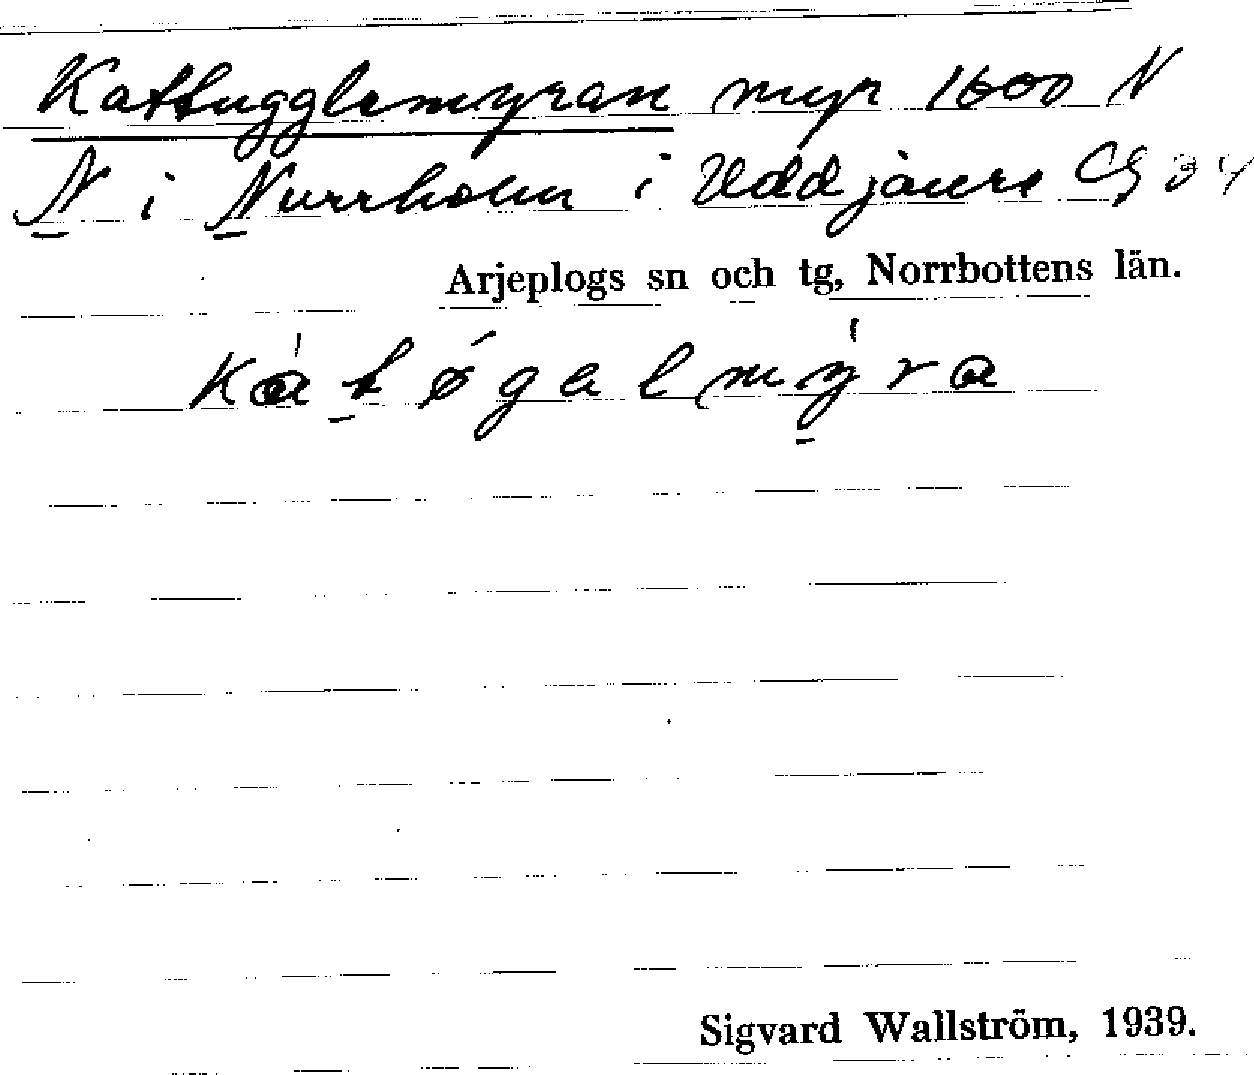 Kattugglemyran myr 1600 N
N i Nurrholm i Uddjaure Cg 34
Arjeplogs sn och tg, Norrbottens län.
kátøgelmy̍ra
Sigvard Wallström, 1939.